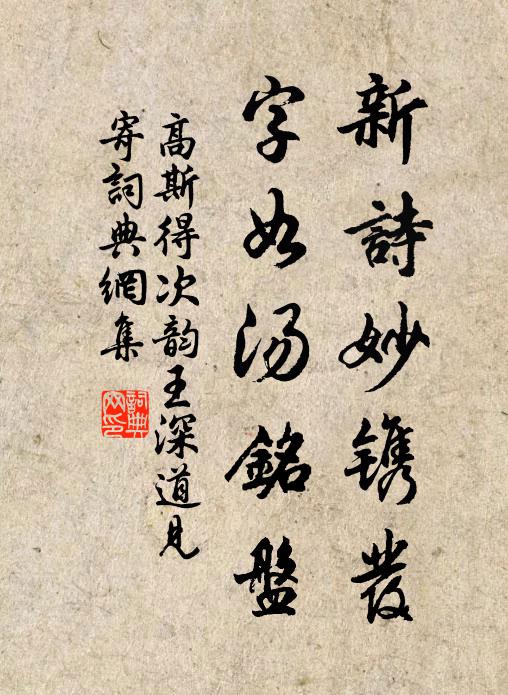 新詩妙鐫發
字如湯銘盤
高斯得次韵王深道見
寄詞典網集
詞典网印